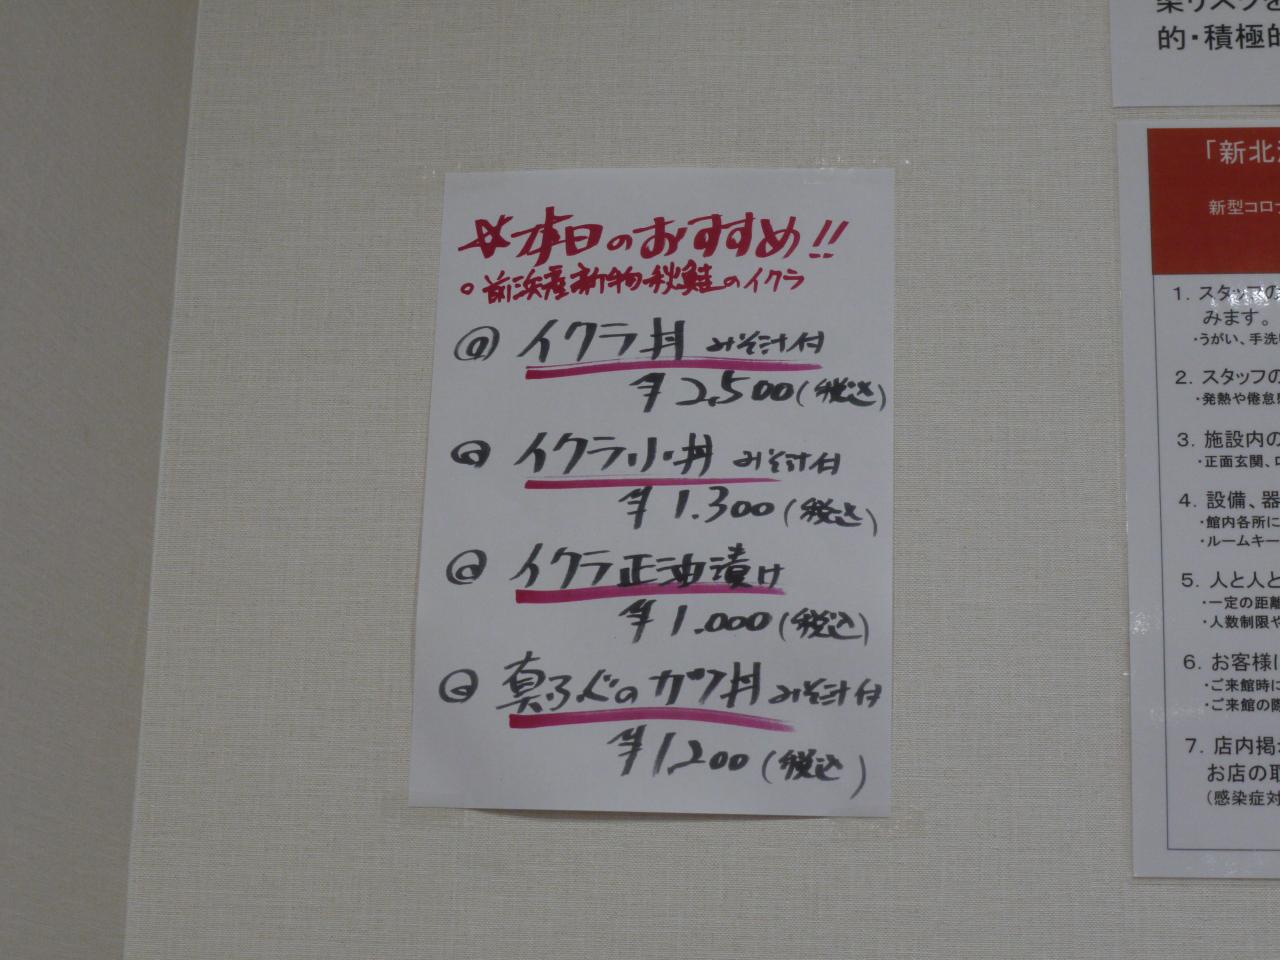 ☆本日のおすすめ!!
○前浜産新物秋鮭のイクラ
@イクラ丼 みそ汁付
¥2,500(税込)
@イクラ小丼 みそ汁付
¥1.300(税込)
@イクラ正油漬け
¥1.000(税込)
@真ふぐのカツ丼みそ汁付
¥1,200(税込)
的・積極的
「新北
新型コロナ
1. スタッフの
みます。
・うがい、手洗い
2. スタッフの
・発熱や倦怠感
3. 施設内の
・正面玄関、ロ
4. 設備、器
・館内各所に
・ルームキー
5. 人と人と
・一定の距離
・人数制限や
6. お客様に
・ご来館時に
・ご来館の際
7. 店内掲
お店の取
(感染症対